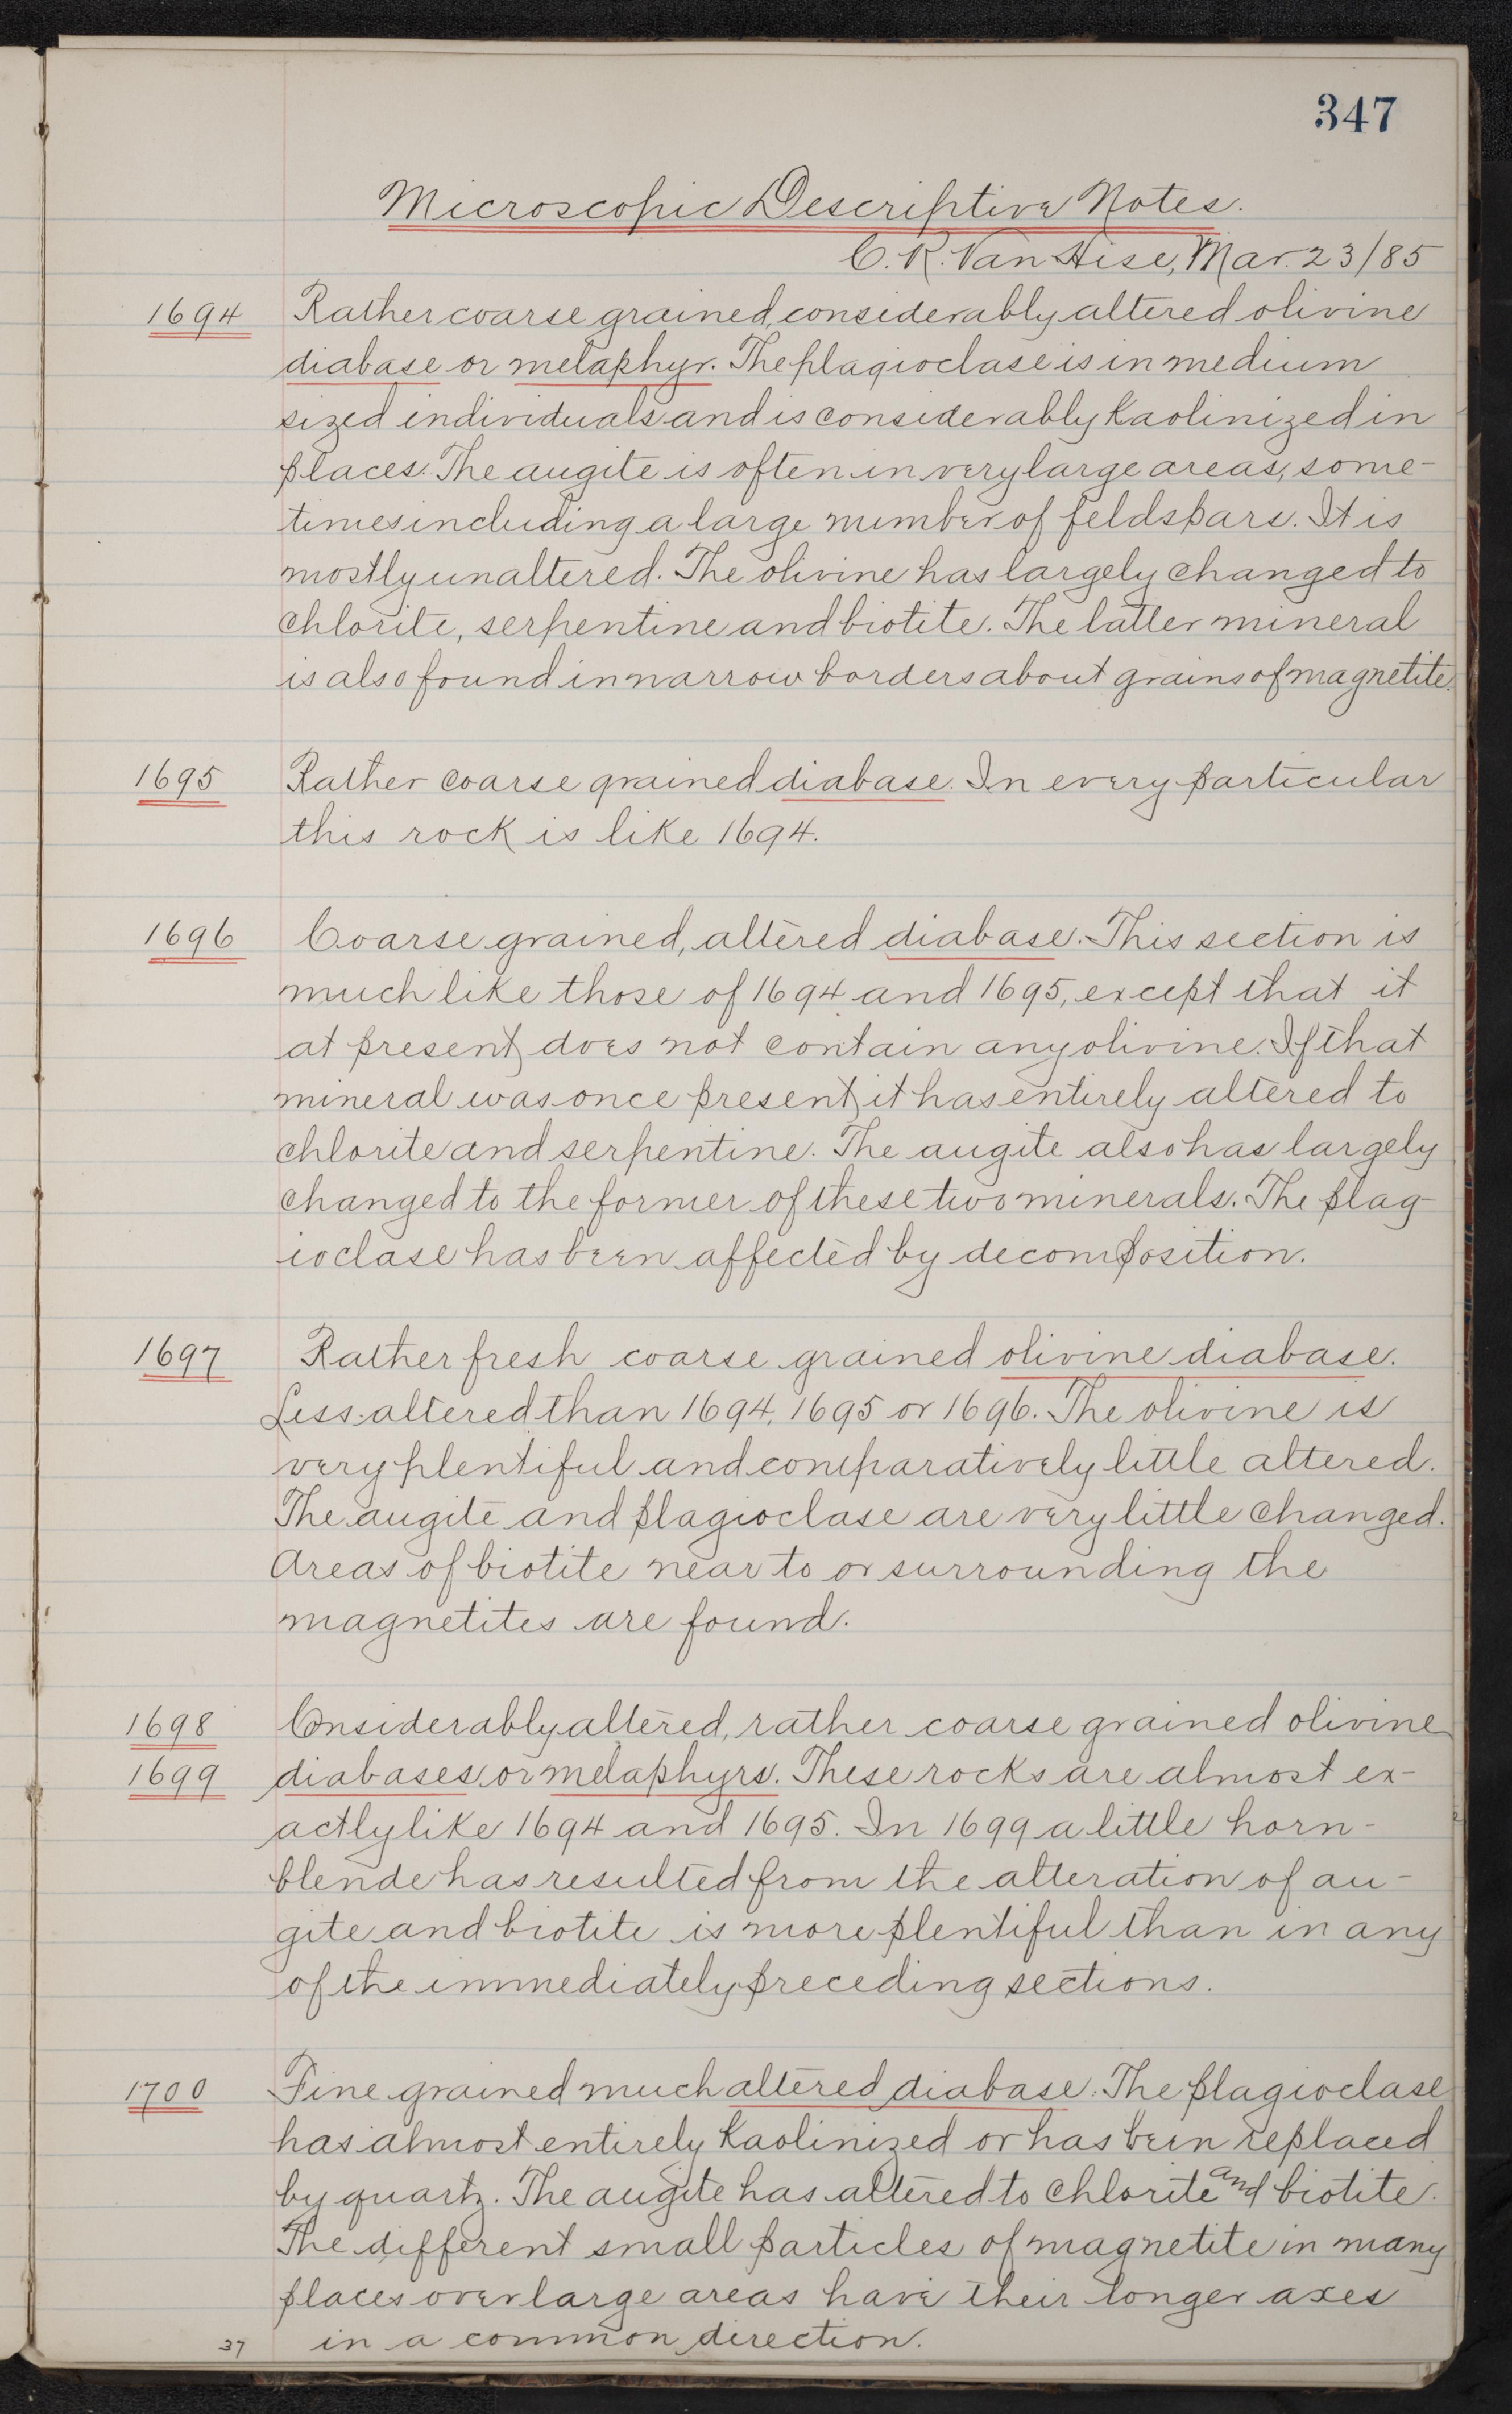 347
Microscopic Descriptive Notes.
C. R. Van Hise, Mar. 23/85
1694 Rather coarse grained, considerably altered olivine
diabase or melaphyr. The plagioclase is in medium
sized individuals and is considerably kaolinized in
places. The augite is often in very large areas, some-
times including a large number of feldspars. It is
mostly unaltered. The olivine has largely changed to
chlorite, serpentine and biotite. The latter mineral
is also found in narrow borders about grains of magnetite.
1695 Rather coarse grained diabase. In every particular
this rock is like 1694.
1696 Coarse grained, altered diabase. This section is
much like those of 1694 and 1695, except that it
at present, does not contain any olivine. If that
mineral was once present, it has entirely altered to
chlorite and serpentine. The augite also has largely
changed to the former of these two minerals. The plag-
ioclase has been affected by decomposition.
1697 Rather fresh coarse grained olivine diabase.
Less altered than 1694, 1695 or 1696. The olivine is
very plentiful and comparatively little altered.
The augite and plagioclase are very little changed.
Areas of biotite near to or surrounding the
magnetites are found.
1698 Considerably altered, rather coarse grained olivine
1699 diabases or melaphyrs. These rocks are almost ex-
actly like 1694 and 1695. In 1699 a little horn-
blende has resulted from the alteration of au-
gite and biotite is more plentiful than in any
of the immediately preceding sections.
1700 Fine grained much altered diabase. The plagioclase
has almost entirely kaolinized or has been replaced
by quartz. The augite has altered to chlorite and biotite.
The different small particles of magnetite in many
places over large areas have their longer axes
37 in a common direction.